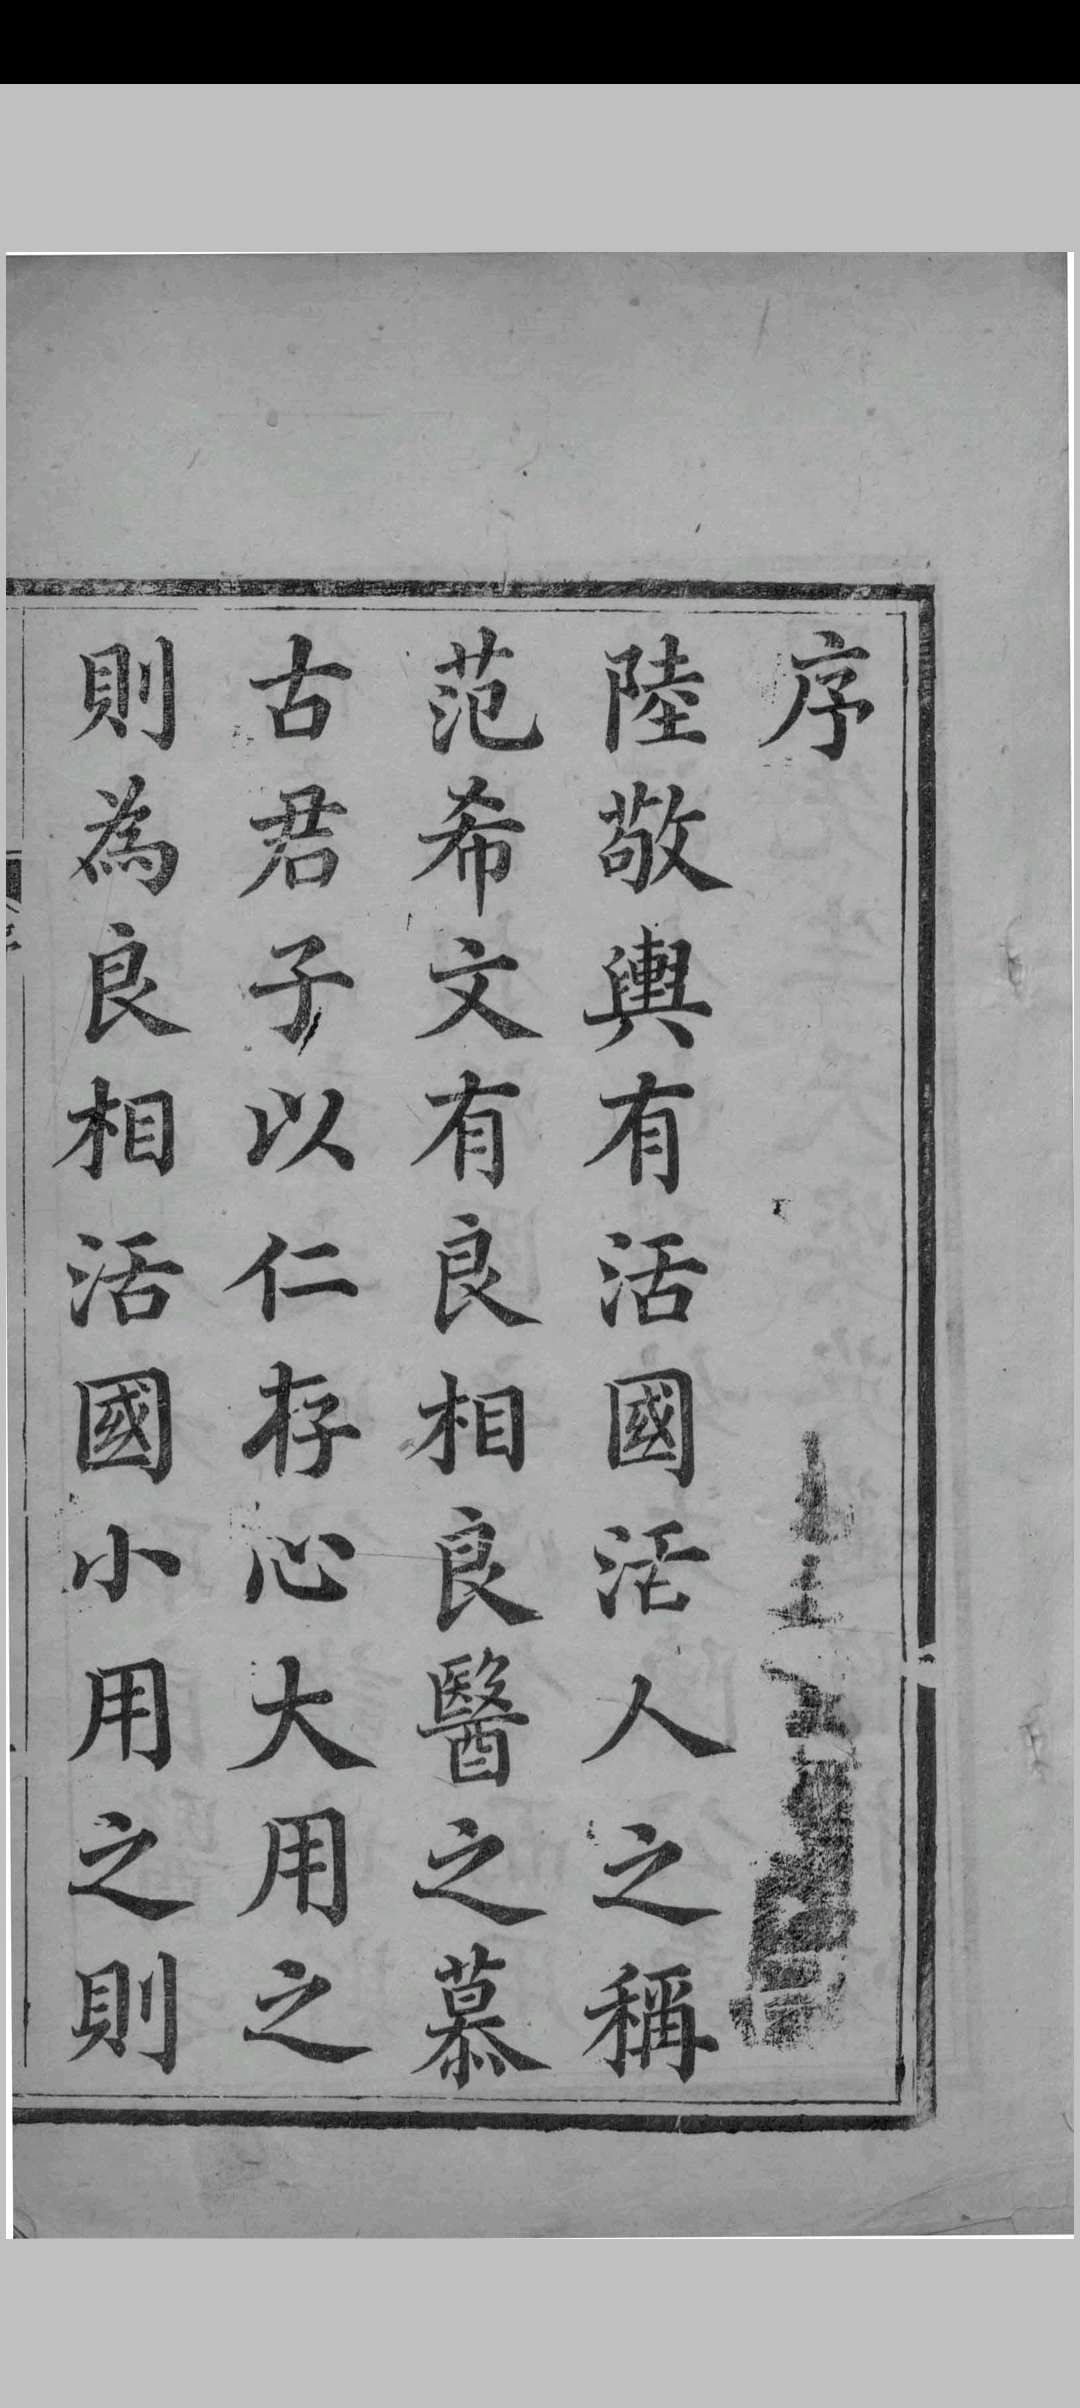 序
陸敬輿有活國活人之稱
范希文有良相良醫之慕
古君子以仁存心大用之
則為良相活國小用之則